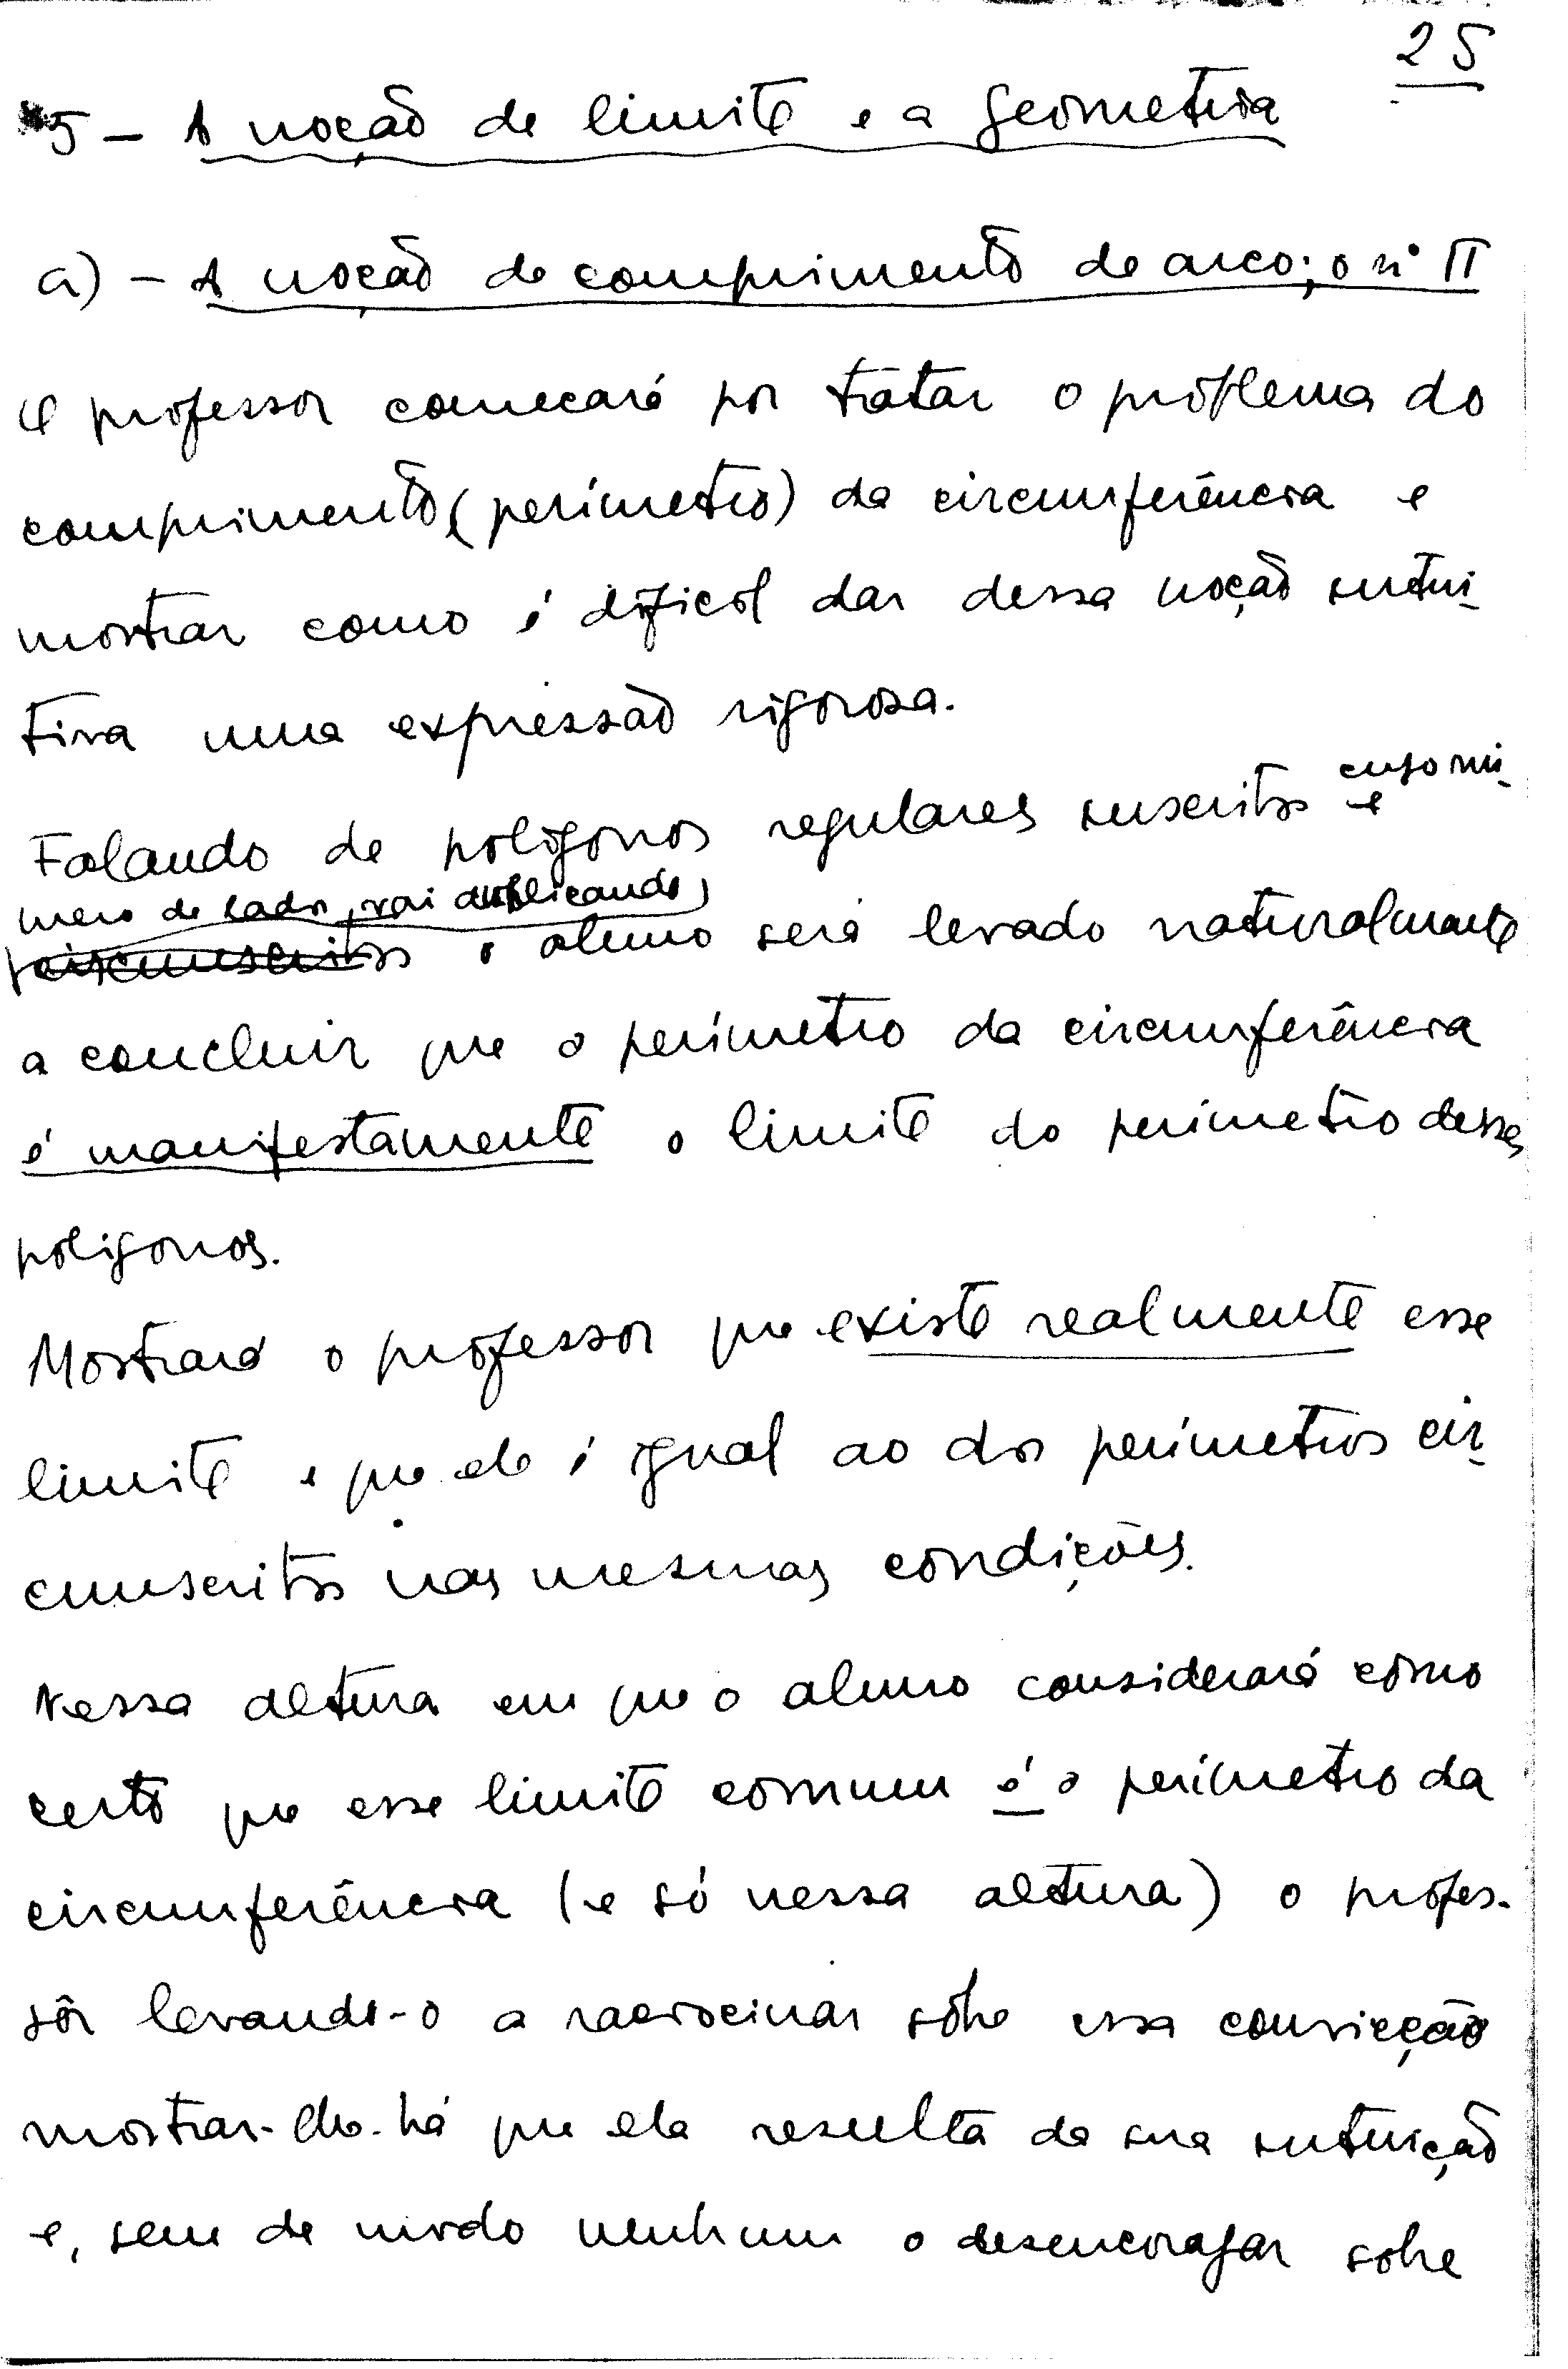 25
5 – A noção de limite e a geometria
a) – A noção de comprimento de arco; o nº π
O professor começará por tratar o problema do
comprimento (perímetro) da circunferência e
mostrar como é difícil dar dessa noção intui-
tiva uma expressão rigorosa.
Falando de polígonos regulares inscritos e cujo nú-
mero de lados, vai duplicando,
circunscritos o aluno será levado naturalmente
a concluir que o perímetro da circunferência
é manifestamente o limite do perímetro desses
polígonos.
Mostrará o professor que existe realmente esse
limite e que ele é igual ao dos perímetros cir-
cunscritos nas mesmas condições.
Nessa altura em que o aluno considerará como
certo que esse limite comum é o perímetro da
circunferência (e só nessa altura) o profes-
sôr levando-o a raciocinar sôbre essa convicção
mostrar-lhe-há que ela resulta da sua intuição
e, sem de modo nenhum o desencorajar sobre